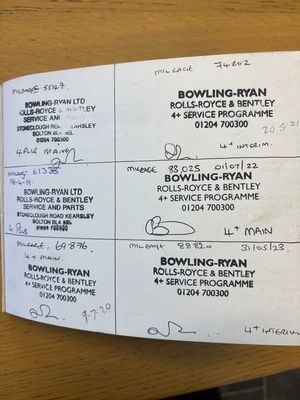 MILEAGE 55147
BOWLING-RYAN LTD
ROLLS-ROYCE & BENTLEY
SERVICE AND
STONECLOUGH ROAD KEARSLEY
BOLTON BL4 8EL
01204 700300
4 PLUS MAIN
MILEAGE 61338
18-4-19.
BOWLING-RYAN LTD
ROLLS-ROYCE & BENTLEY
SERVICE AND PARTS
STONECLOUGH ROAD KEARSLEY
BOLTON BL4 8EL
01204 700300
4 Plus
MILEAGE. 69876
4+ MAIN.
BOWLING-RYAN
ROLLS-ROYCE & BENTLEY
4+ SERVICE PROGRAMME
01204 700300
9-7-20
MILEAGE 74802
BOWLING-RYAN
ROLLS-ROYCE & BENTLEY
4+ SERVICE PROGRAMME
01204 700300
20.5.21
4+ INTERIM.
MILEAGE 83,025 01/07/22
BOWLING-RYAN
ROLLS-ROYCE & BENTLEY
4+ SERVICE PROGRAMME
01204 700300
4+ MAIN
MILEAGE 88820 31/05/23.
BOWLING-RYAN
ROLLS-ROYCE & BENTLEY
4+ SERVICE PROGRAMME
01204 700300
4+ INTERIM